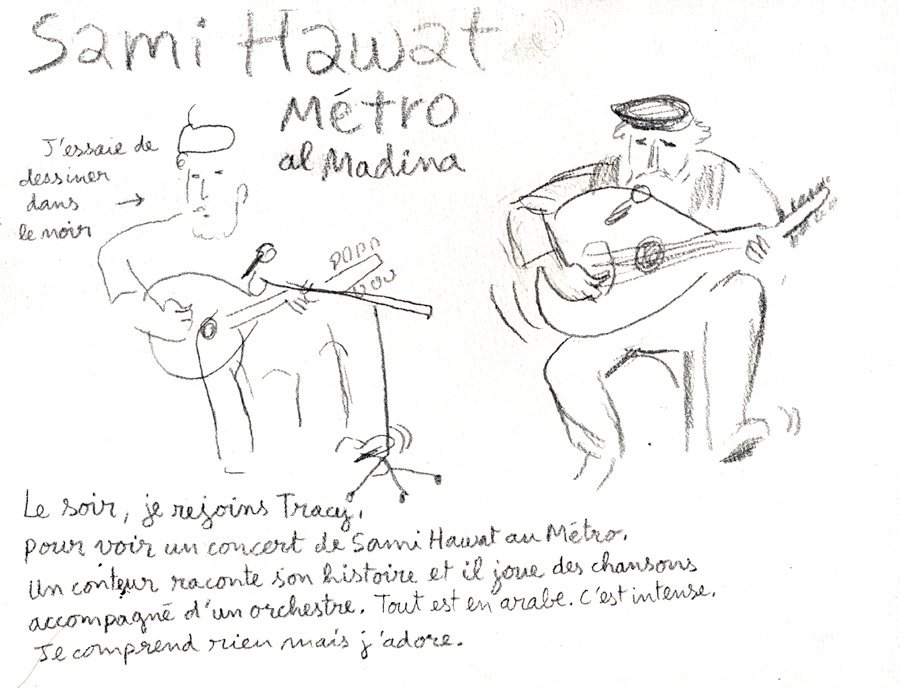 Sami Hawat
Métro
al Madina
J'essaie de
dessiner
dans →
le noir
Le soir, je rejoins Tracy,
pour voir un concert de Sami Hawat au Métro.
Un conteur raconte son histoire et il joue des chansons
accompagné d'un orchestre. Tout est en arabe. C'est intense.
Je comprend rien mais j'adore.